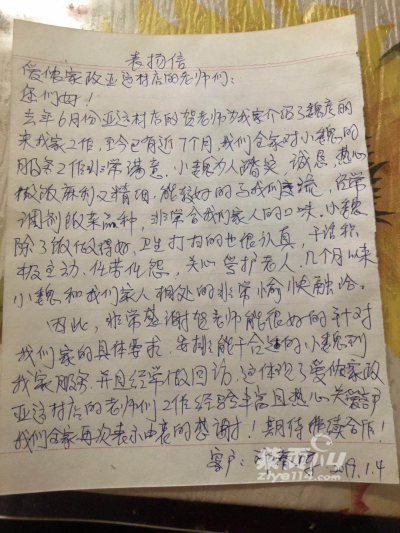 表扬信
爱侬家政亚运村店的老师们：
您们好！
去年6月份亚运村店的贺老师为我家介绍了魏
来我家工作，至今已有近7个月，我们全家对小魏的
服务工作非常满意。小魏为人踏实、诚恳、热心
做饭麻利又精细，能较好的与我们交流，经常
调剂饭菜品种，非常合我们家人的口味。小魏
除了饭做得好，卫生打扫的也很认真，干活积
极主动，任劳任怨，关心爱护老人，几个月以来
小魏和我们家人相处的非常愉快融洽。
因此，非常感谢贺老师能很好的针对
我们家的具体要求，安排能干合适的小魏到
我家服务，并且经常做回访，这体现了爱侬家政
亚运村店的老师们工作经验丰富且热心关爱客户
我们全家再次表示由衷的感谢！期待继续合作！
客户： 2019.1.4
ziye114.com